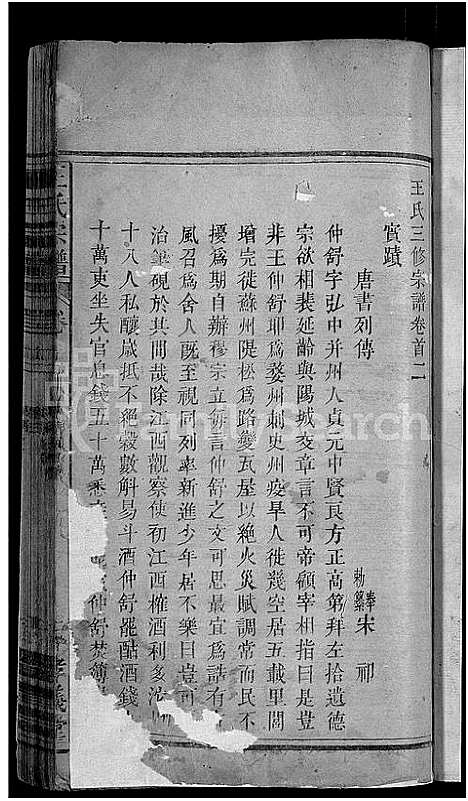 王氏三修宗譜卷首二
實蹟
唐書列傳
奉勅纂宋祁
仲舒字弘中并州人貞元中賢良方正高第拜左拾遺德
宗欲相裴延齡與陽城交章言不可帝顧宰相指曰是豈
非王仲舒耶爲婺州刺史州疫旱人徙幾空居五載里閭
增完徙蘇州隄松爲路變瓦屋以絶火災賦調常而民不
擾爲期自辦穆宗立每言仲舒之文可思最宜爲誥有
風召爲舍人既至視同列率新進少年居不樂曰豈可
治筆硯於其間哉除江西觀察使初江西榷酒利多
十八人私釀嵗抵不絕穀數斛易斗酒仲舒罷酤酒錢
十萬吏坐失官息錢五十萬悉
仲舒焚簿
王氏宗譜
卷
孝義堂
FamilySearch